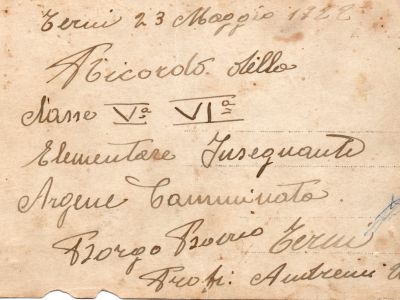 Terni 23 Maggio 1922
Ricordo della
classe Vª VIª
Elementare Insegnante
Argene Camminata
Borgo Bovio Terni
Prof: